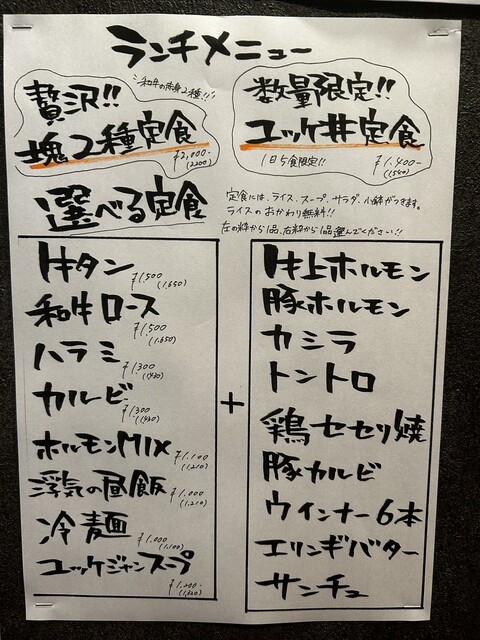 ランチメニュー
贅沢!!
和牛の赤身2種!!
塊2種定食
¥2,000-
(2200)
数量限定!!
ユッケ丼定食
1日5食限定!!
¥1,400-
(1540)
選べる定食
定食には、ライス、スープ、サラダ、小鉢がつきます。
ライスのおかわり無料!!
左の枠から1品、右枠から1品選んでください!!
牛タン ¥1,500 (1,650)
和牛ロース ¥1,500 (1,650)
ハラミ ¥1,300 (1,430)
カルビ ¥1,300 (1,430)
ホルモンMIX ¥1,100 (1,210)
浮気の昼飯 ¥1,000 (1,210)
冷麺 ¥1,000 (1,100)
ユッケジャンスープ ¥1,200- (1,320)
+
牛上ホルモン
豚ホルモン
カシラ
トントロ
鶏セセリ焼
豚カルビ
ウインナー6本
エリンギバター
サンチュ